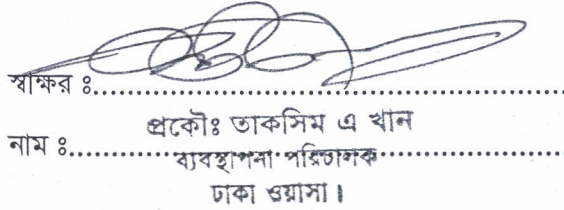 স্বাক্ষর ঃ
প্রকৌঃ তাকসিম এ খান
নাম ঃ
ব্যবস্থাপনা পরিচালক
ঢাকা ওয়াসা।